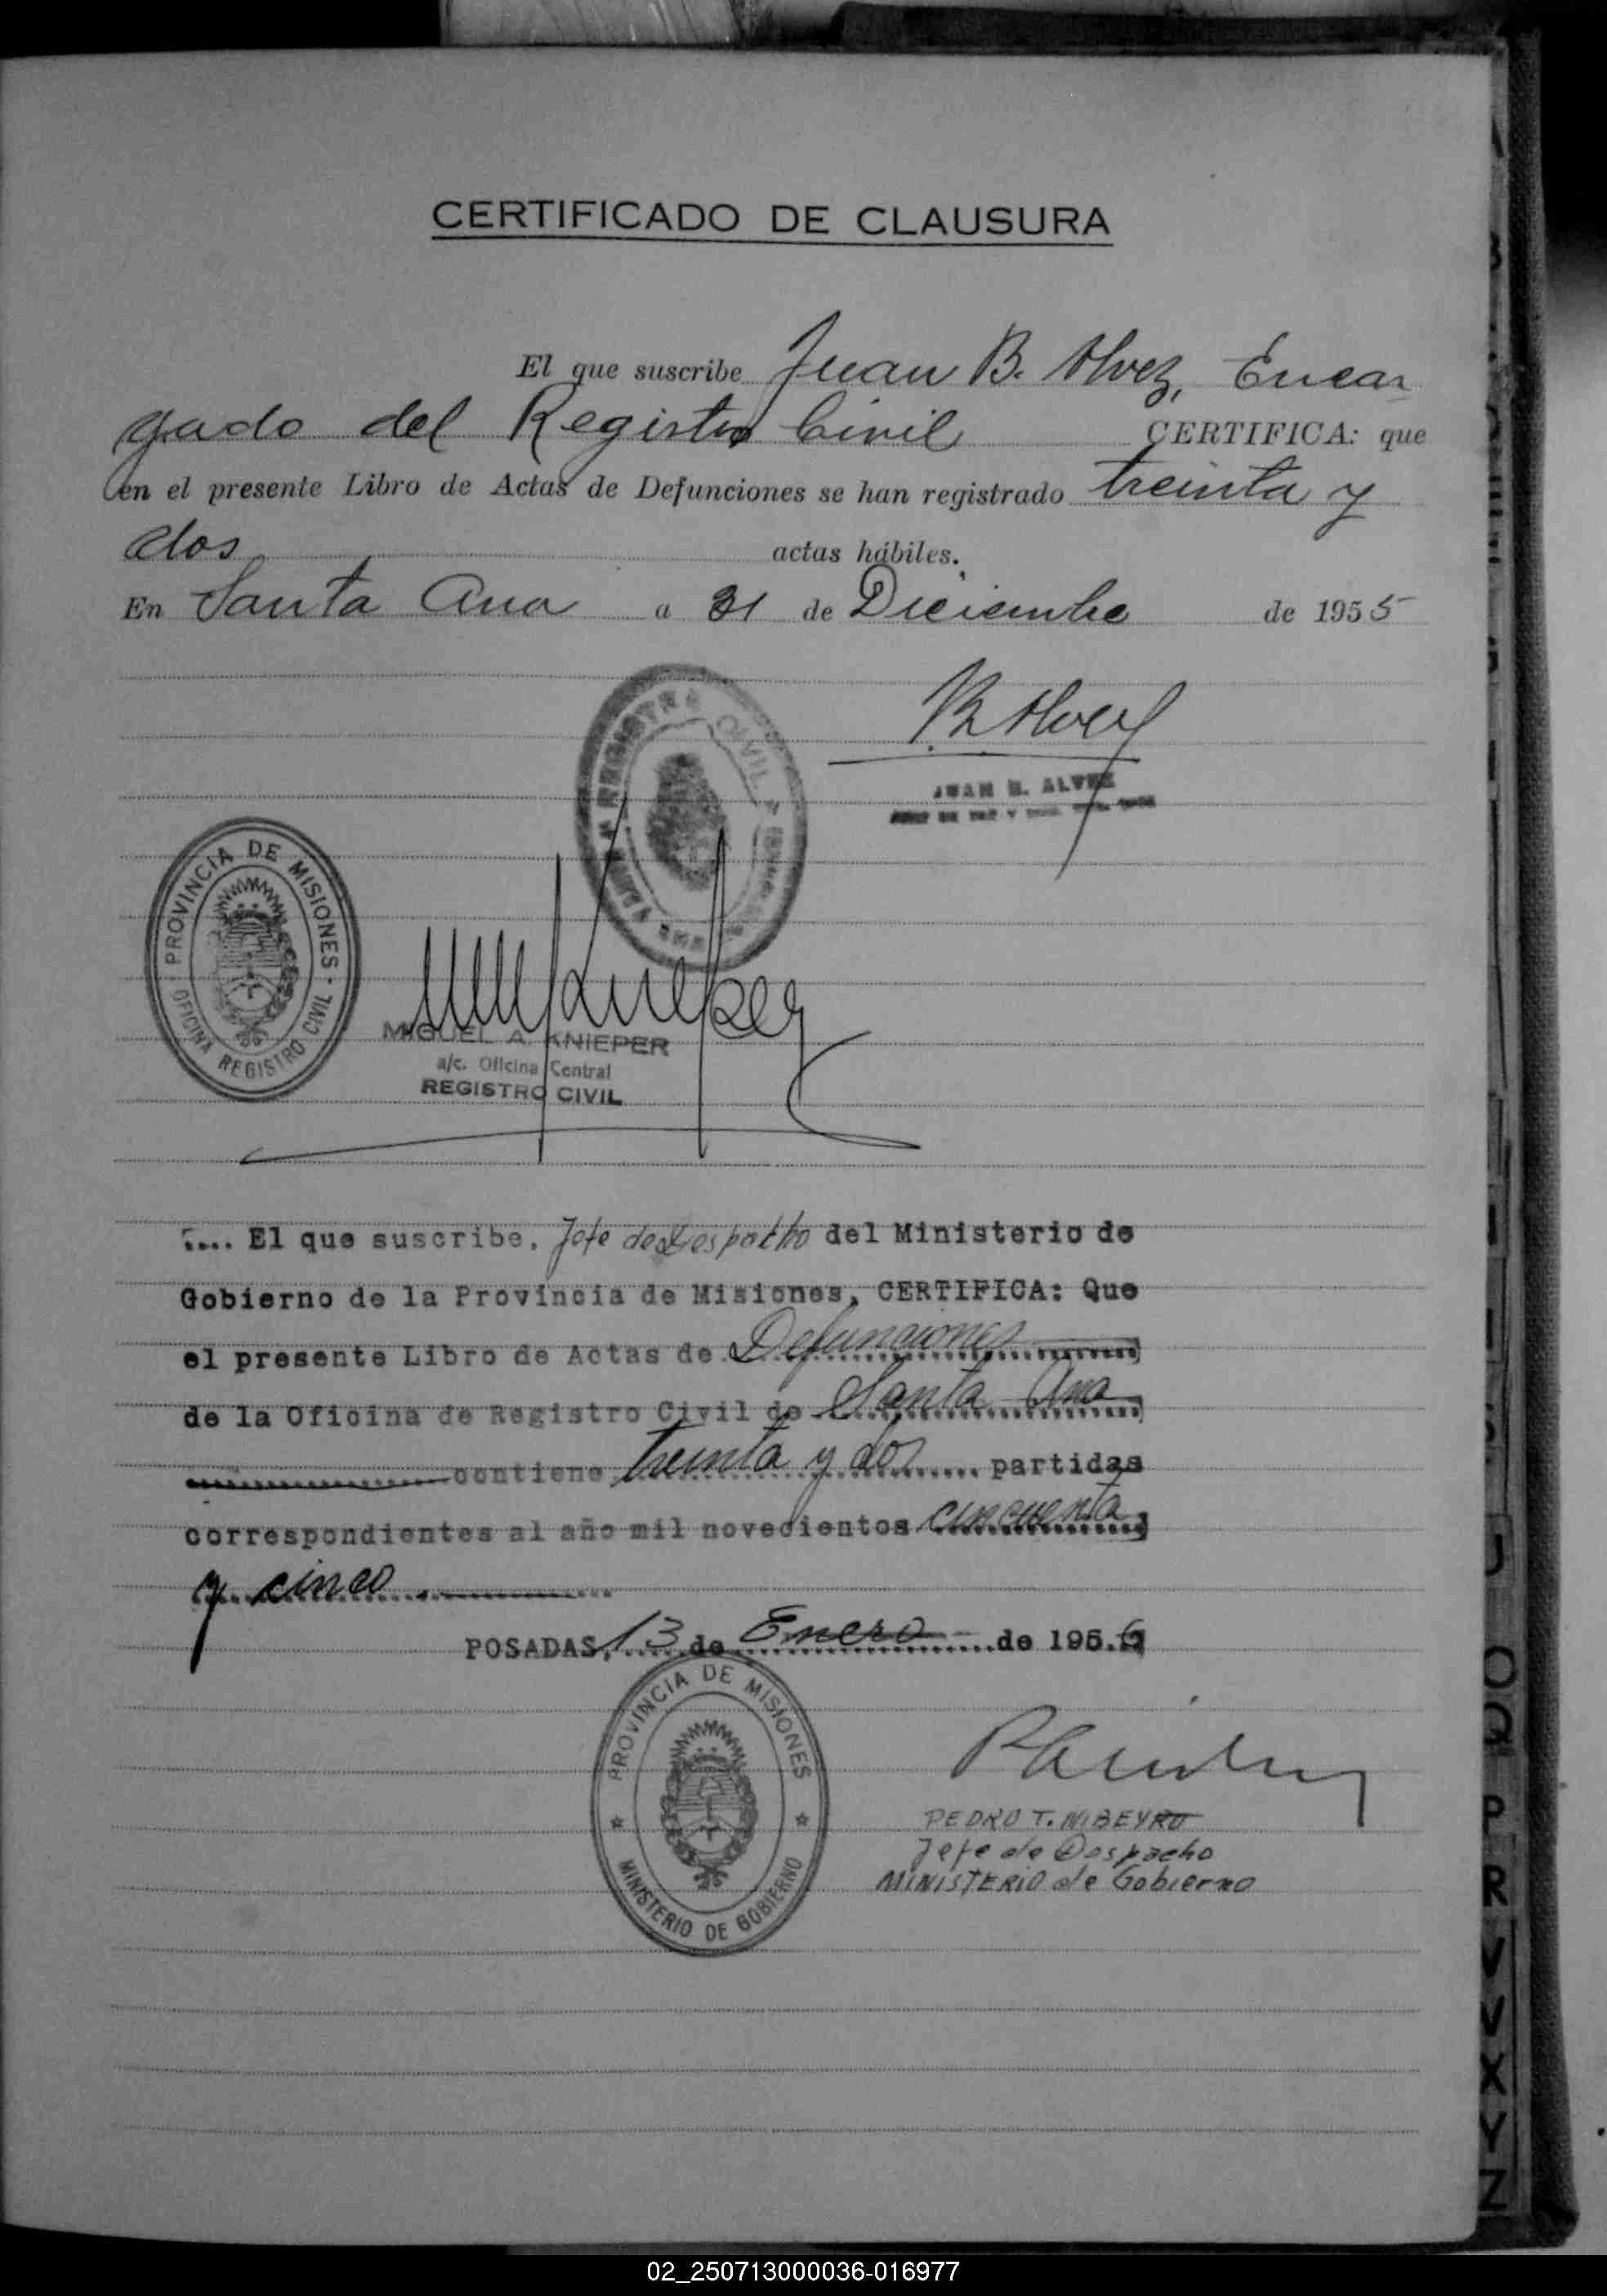 CERTIFICADO DE CLAUSURA
El que suscribe Juan B. Alvez, Encar
gado del Registro Civil CERTIFICA: que
en el presente Libro de Actas de Defunciones se han registrado treinta y
dos actas hábiles.
En Santa Ana a 31 de Diciembre de 1955
REGISTRO CIVIL
JUAN B. ALVEZ
PROVINCIA DE MISIONES
OFICINA REGISTRO CIVIL
MIGUEL A. KNIEPER
a/c. Oficina Central
REGISTRO CIVIL
El que suscribe, Jefe de Despacho del Ministerio de
Gobierno de la Provincia de Misiones, CERTIFICA: Que
el presente Libro de Actas de Defunciones
de la Oficina de Registro Civil de Santa Ana
contiene treinta y dos partidas
correspondientes al año mil novecientos cincuenta
y cinco
POSADAS, 13 de Enero de 1956
PROVINCIA DE MISIONES
MINISTERIO DE GOBIERNO
PEDRO T. 
Jefe de Despacho
MINISTERIO de Gobierno
O
Q
P
R
V
V
X
Y
Z
02_250713000036-016977